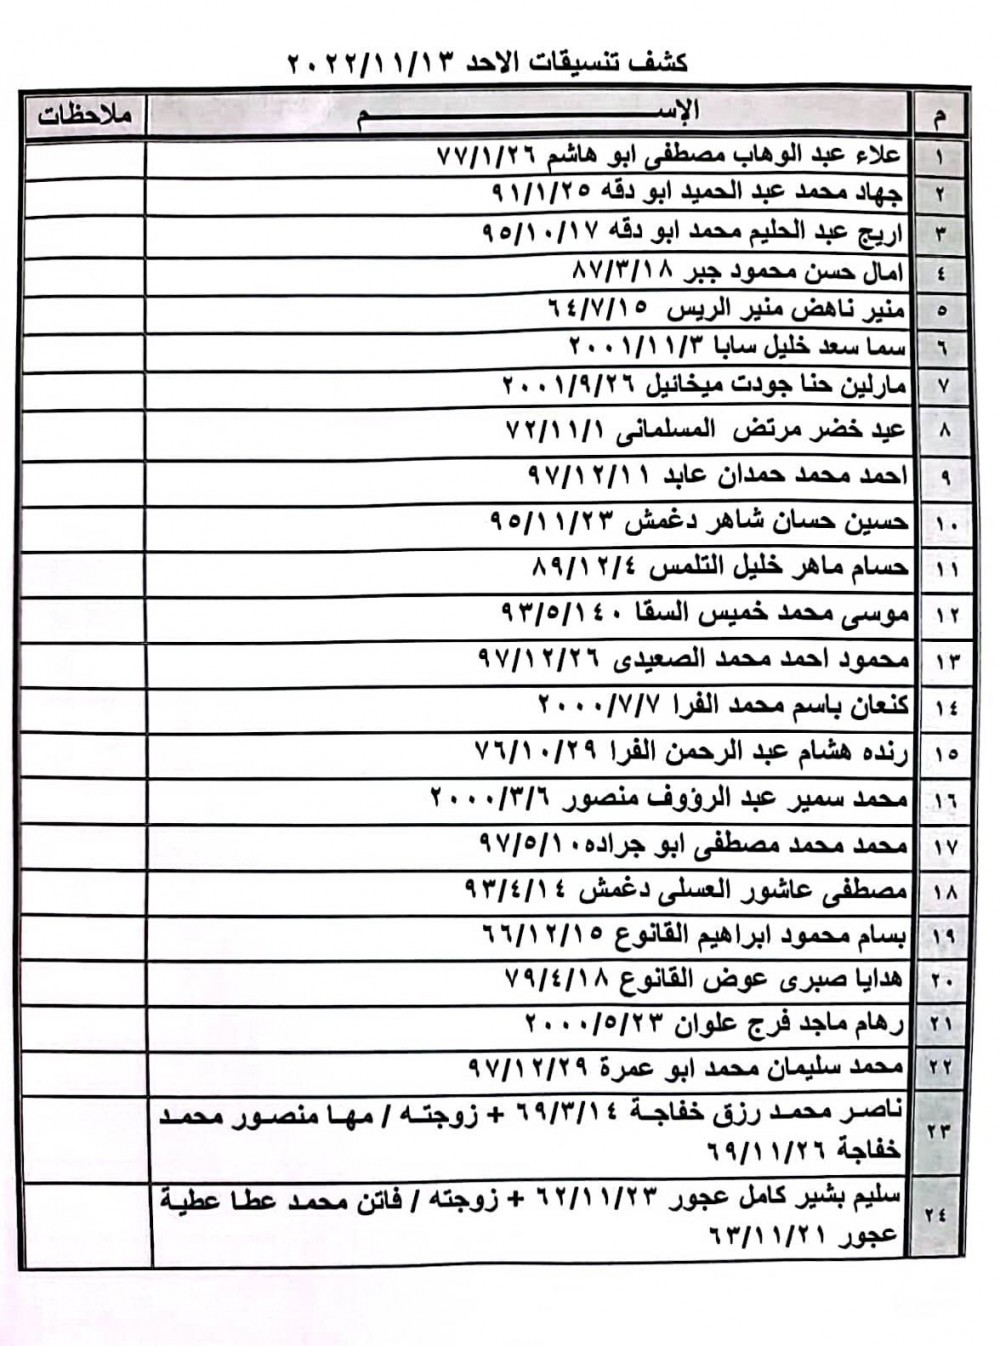 كشف تنسيقات الاحد ٢٠٢٢/١١/١٣
م الإســـــــــــــــم ملاحظات
١ علاء عبد الوهاب مصطفى ابو هاشم ٧٧/١/٢٦
٢ جهاد محمد عبد الحميد ابو دقه ٩١/١/٢٥
٣ اريج عبد الحليم محمد ابو دقه ٩٥/١٠/١٧
٤ امال حسن محمود جبر ٨٧/٣/١٨
٥ منير ناهض منير الريس ٦٤/٧/١٥
٦ سما سعد خليل سابا ٢٠٠١/١١/٣
٧ مارلين حنا جودت ميخائيل ٢٠٠١/٩/٢٦
٨ عيد خضر مرتض المسلمانى ٧٢/١١/١
٩ احمد محمد حمدان عابد ٩٧/١٢/١١
١٠ حسين حسان شاهر دغمش ٩٥/١١/٢٣
١١ حسام ماهر خليل التلمس ٨٩/١٢/٤
١٢ موسى محمد خميس السقا ٩٣/٥/١٤٠
١٣ محمود احمد محمد الصعيدى ٩٧/١٢/٢٦
١٤ كنعان باسم محمد الفرا ٢٠٠٠/٧/٧
١٥ رنده هشام عبد الرحمن الفرا ٧٦/١٠/٢٩
١٦ محمد سمير عبد الرؤوف منصور ٢٠٠٠/٣/٦
١٧ محمد محمد مصطفى ابو جراده٩٧/٥/١٠
١٨ مصطفى عاشور العسلى دغمش ٩٣/٤/١٤
١٩ بسام محمود ابراهيم القانوع ٦٦/١٢/١٥
٢٠ هدايا صبرى عوض القانوع ٧٩/٤/١٨
٢١ رهام ماجد فرج علوان ٢٠٠٠/٥/٢٣
٢٢ محمد سليمان محمد ابو عمرة ٩٧/١٢/٢٩
٢٣ ناصر محمد رزق خفاجة ٦٩/٣/١٤ + زوجته / مها منصور محمد
خفاجة ٦٩/١١/٢٦
٢٤ سليم بشير كامل عجور ٦٢/١١/٢٣ + زوجته / فاتن محمد عطا عطية
عجور ٦٣/١١/٢١